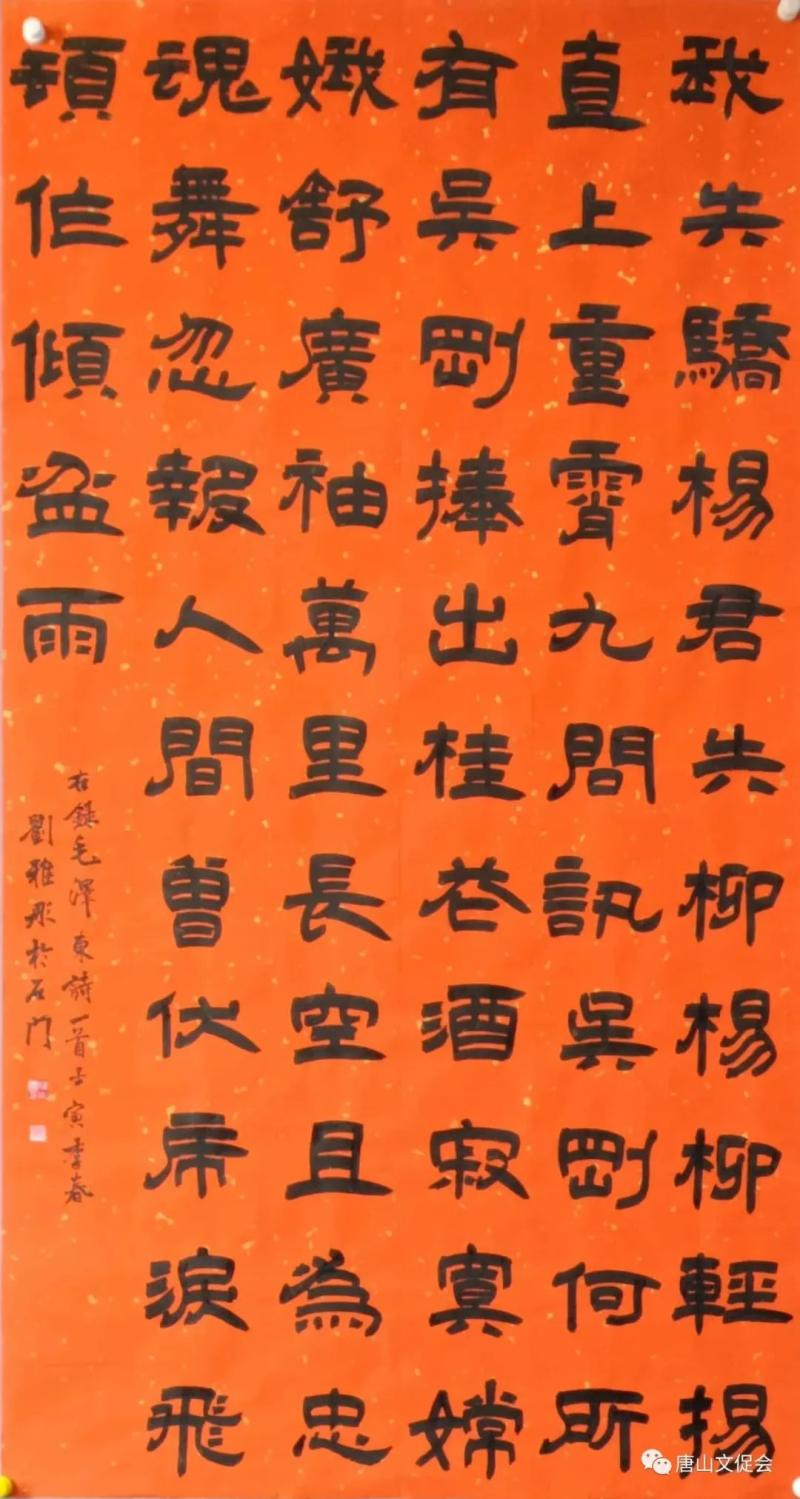 我失驕楊君失柳楊柳輕揚
直上重霄九問訊吳剛何所
有吳剛捧出桂花酒寂寞嫦
娥舒廣袖萬里長空且為忠
魂舞忽報人間曾伏虎淚飛
頓作傾盆雨
右錄毛澤東詩一首壬寅季春
劉雅彤於石門
唐山文促会